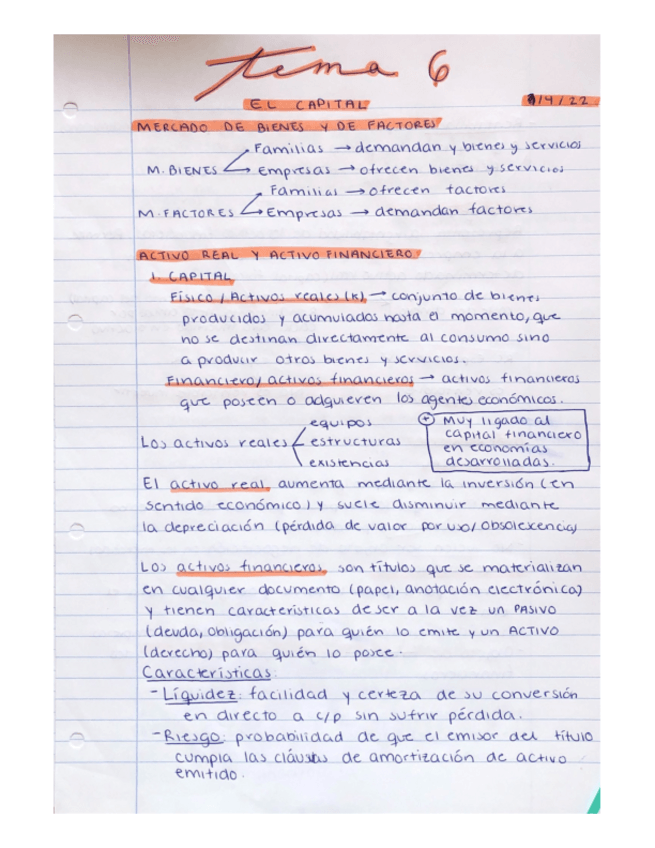 tema 6
EL CAPITAL
/4/22
MERCADO DE BIENES Y DE FACTORES
Familias → demandan y bienes y servicios
M. BIENES
Empresas → ofrecen bienes y servicios
Familias → ofrecen factores
M. FACTORES
Empresas → demandan factores
ACTIVO REAL Y ACTIVO FINANCIERO
1. CAPITAL
Físico / Activos reales (K) → conjunto de bienes
producidos y acumulados hasta el momento, que
no se destinan directamente al consumo sino
a producir otros bienes y servicios.
Financiero/ activos financieros → activos financieros
que poseen o adquieren los agentes económicos.
equipos
Los activos reales
estructuras
existencias
+ Muy ligado al
capital financiero
en economías
desarrolladas.
El activo real aumenta mediante la inversión (en
sentido económico) y suele disminuir mediante
la depreciación (pérdida de valor por uso/obsolexencia)
Los activos financieros son títulos que se materializan
en cualquier documento (papel, anotación electrónica)
y tienen características de ser a la vez un PASIVO
(deuda, obligación) para quién lo emite y un ACTIVO
(derecho) para quién lo posee.
Características:
- Líquidez: facilidad y certeza de su conversión
en directo a c/p sin sufrir pérdida.
- Riesgo: probabilidad de que el emisor del título
cumpla las cláusulas de amortización de activo
emitido.